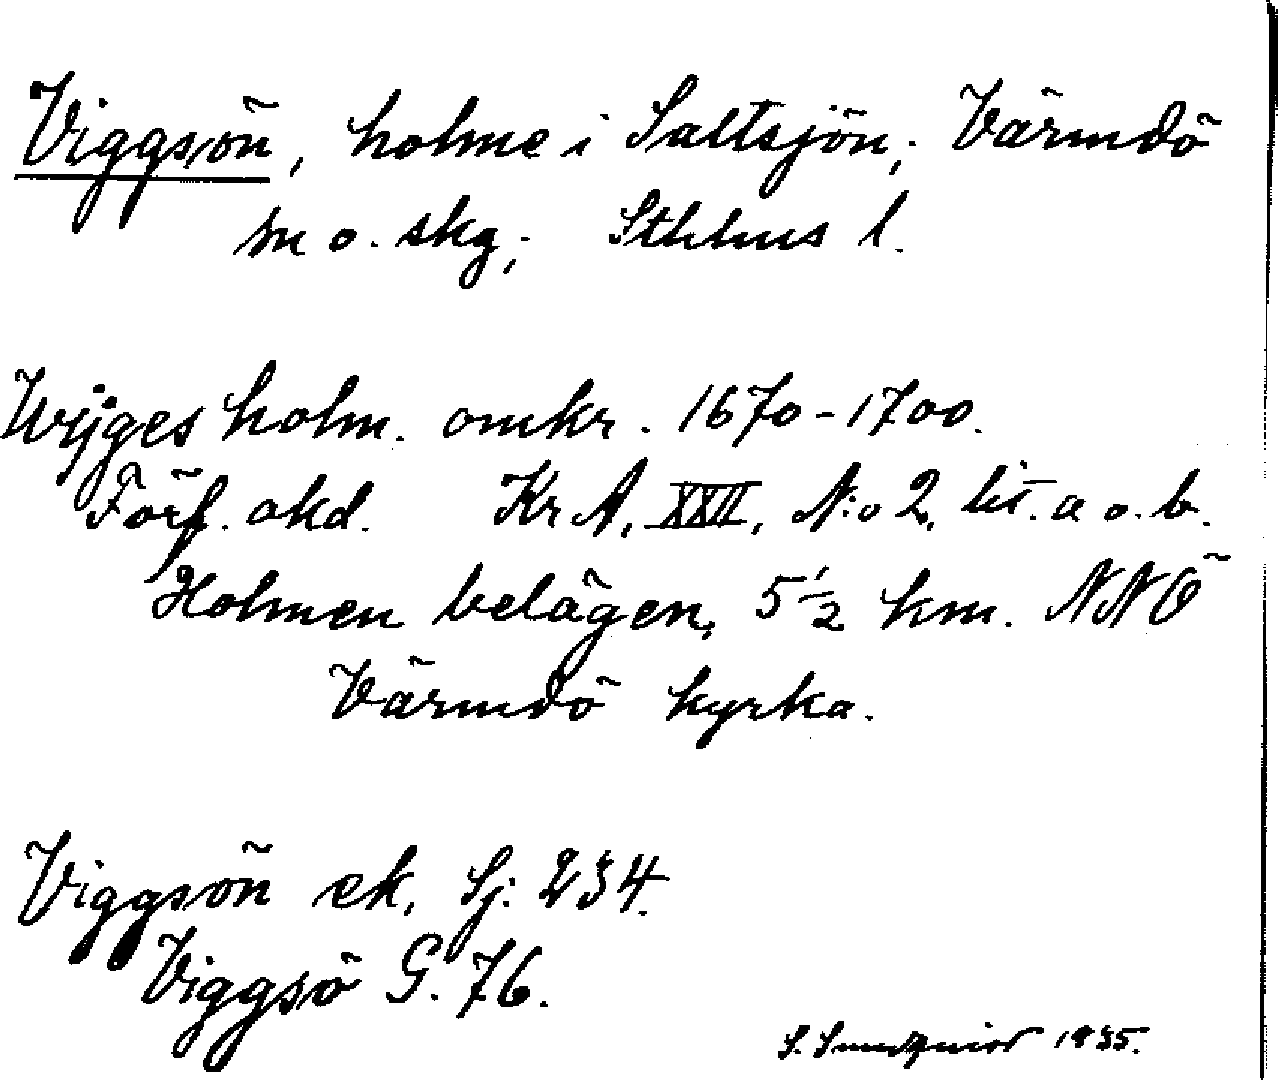 Viggsön, holme i Saltsjön, Värmdö
sn o. skg; Sthlms l.
Wijges holm. omkr. 1670-1700.
Förf. okd. Kr A, XXII, N:o 2, lit. a o. b.
Holmen belägen, 5 1/2 km. NNÖ
Värmdö kyrka.
Viggsön ek, Sj. 234.
Viggsö G. 76.
S. Sundquist 1935.